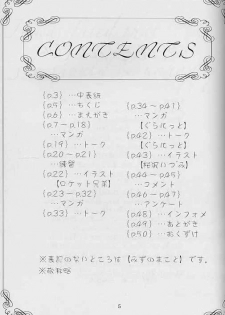 CONTENTS
(p3) …中表紙
(p5) …もくじ
(p6) …まえがき
(p7~p18)
…マンガ
(p19) …トーク
(p20~p21)
(p22) …イラスト
【ロケット兄弟】
(p23~p32)
…マンガ
(p33) …トーク
(p34~p41)
…マンガ
【ぐらんたっと】
(p42) …トーク
(p43) …イラスト
(p44~p45)
…コメント
(p46~p47)
…アンケート
(p48) …インフォメ
(p49) …あとがき
(p50) …おくずけ
※表記のないところは【みずのまこと】です。
※敬称略
5